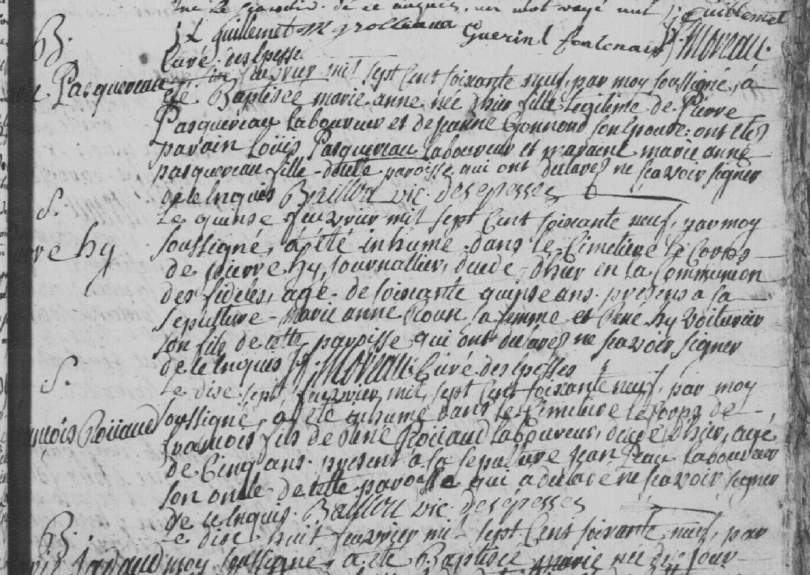 J. Guillemet
J. Moreau
Curé des epesses
B. Pasquereau
fevrier mil sept Cent soixante neuf, par moy soussigné, a
été Baptisée marie anne, née d'hier fille legitime de Pierre
Pasquereau laboureur et de jeanne son epouse. ont etés
parain Louis Pasquereau laboureur et maraine marie anne
pasquereau fille - paroisse qui ont declarés ne scavoir signer
de ce enquis vic. des epesses
S.
Le quinse fevrier mil sept Cent soixante neuf, par moy
soussigné, a été inhumé dans le Cimetiere le Corps
de pierre hy, journallier, decedé d'hier en la Communion
des fideles, agé de soixante quinse ans. presens a sa
sepulture - marie anne sa femme et rene hy voiturier
son fils de cette paroisse qui ont declarés ne scavoir signer
de ce enquis J. Moreau Curé des epesses
S.
Le dix sept fevrier mil sept Cent soixante neuf, par moy
soussigné, a été inhumé dans le Cimetiere le corps de
francois fils de rené Roüaud laboureur, decedé d'hier, agé
de Cinq ans. present a sa sepulture jean laboureur
son oncle de cette paroisse qui a declaré ne scavoir signer
de ce enquis. vic. des epesses
B.
Le dix huit fevrier mil sept Cent soixante neuf, par
moy soussigné, a été Baptisée marie née du jour